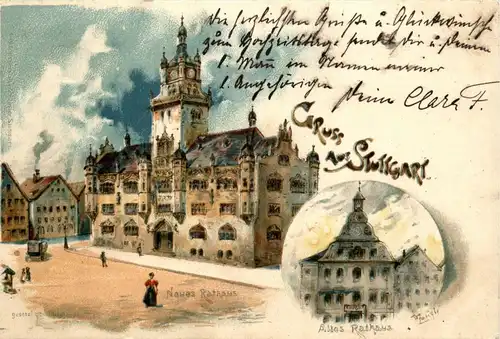 die herzlichsten Grüße u. Glückwünsche
zum Hochzeitstage sendet dir u. deinem
l. Mann im Namen meiner
l. Angehörigen
Deine Clara F.
Gruss
aus Stuttgart.
Neues Rathaus
Altes Rathaus